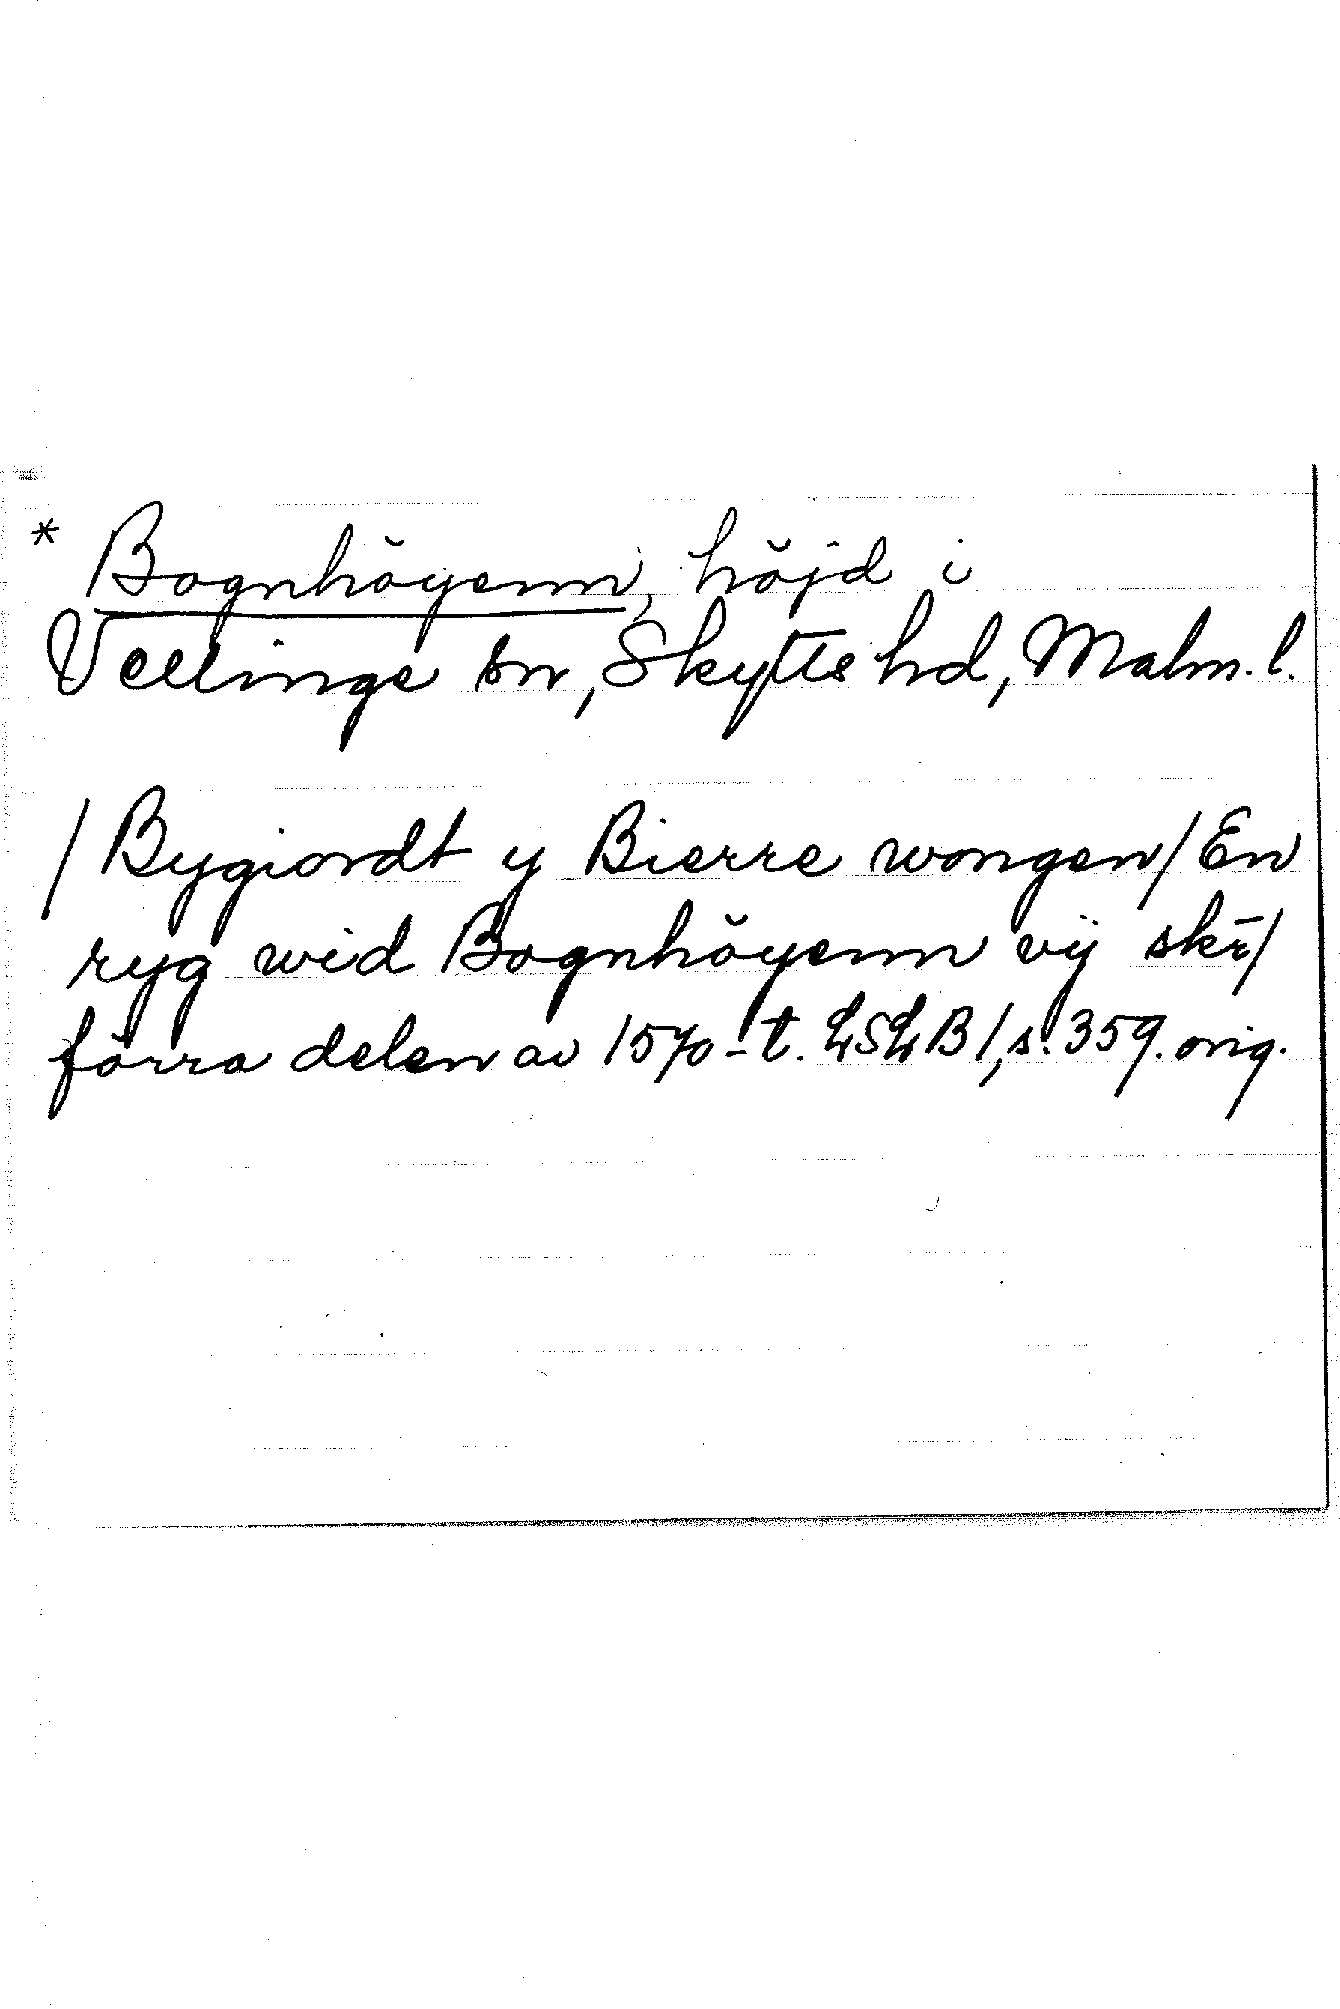 * Bognhöyenn, höjd i
Vellinge sn, Skytts hd, Malm. l.
/ Bygiordt y Bierre wongen/ En
ryg wid Bognhöyenn vÿ skr̄/
förra delen av 1570-t. LSLB 1, s. 359. orig.